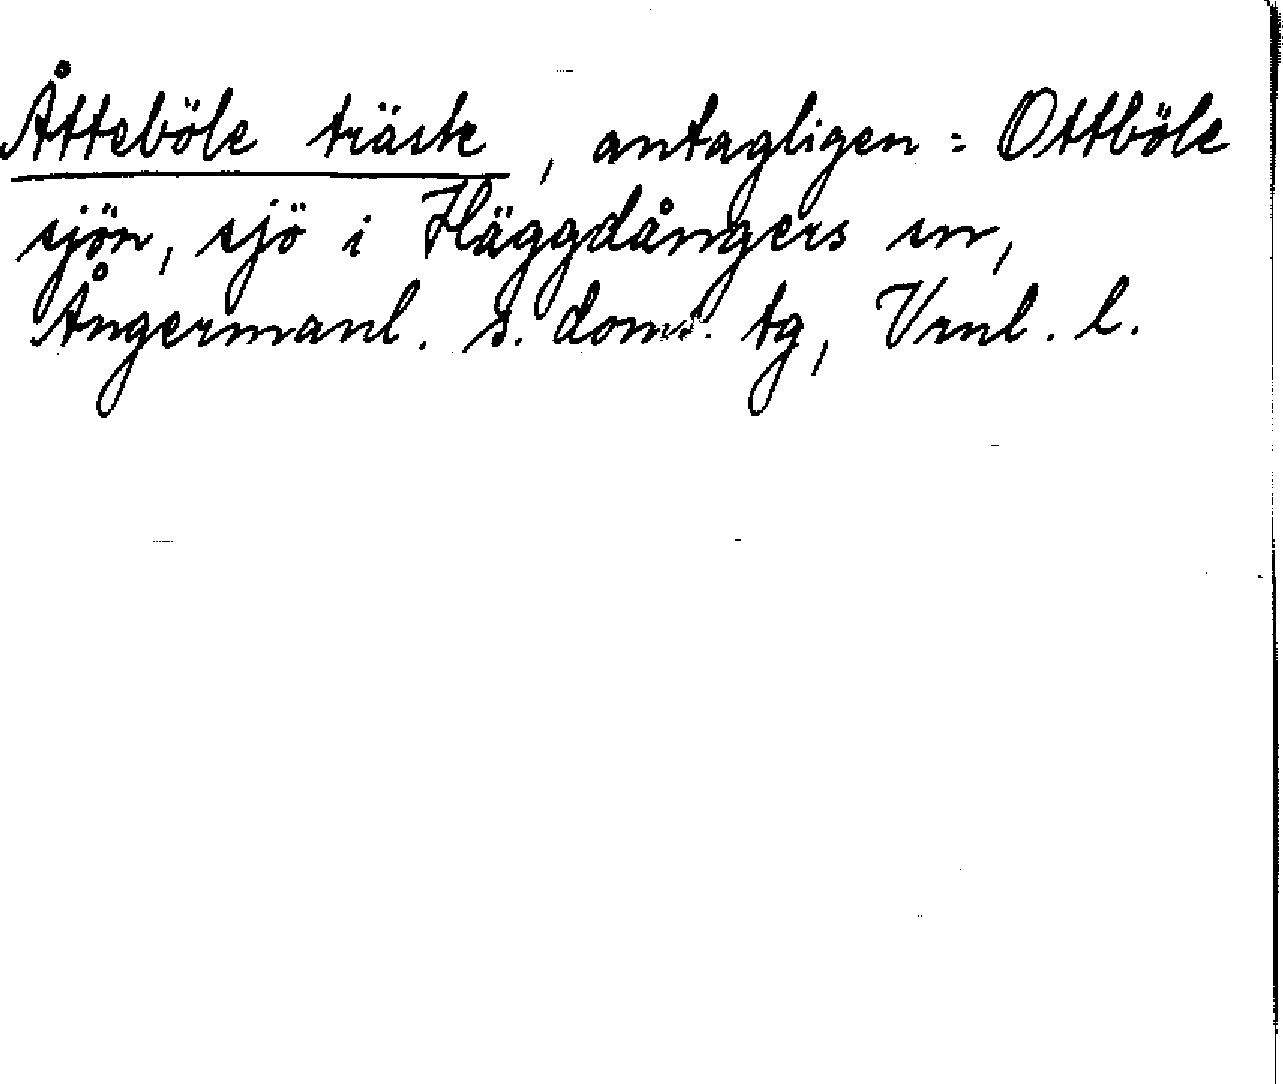 Åtteböle träsk, antagligen = Ottböle
sjön, sjö i Häggdångers sn,
Ångermanl. s. doms. tg, Vrnl. l.